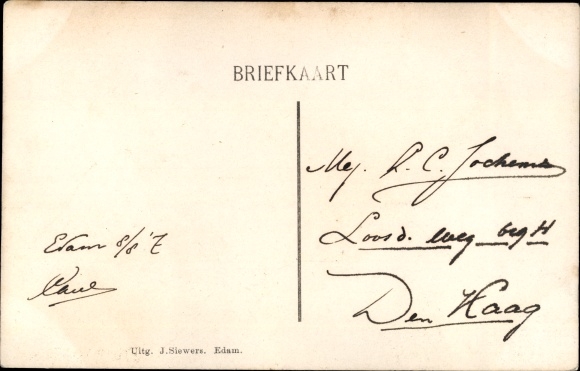 BRIEFKAART
Mej. C. Jochems
Loosd. weg
Den Haag
Edam 8/8 '7
Uitg. J. Siewers. Edam.